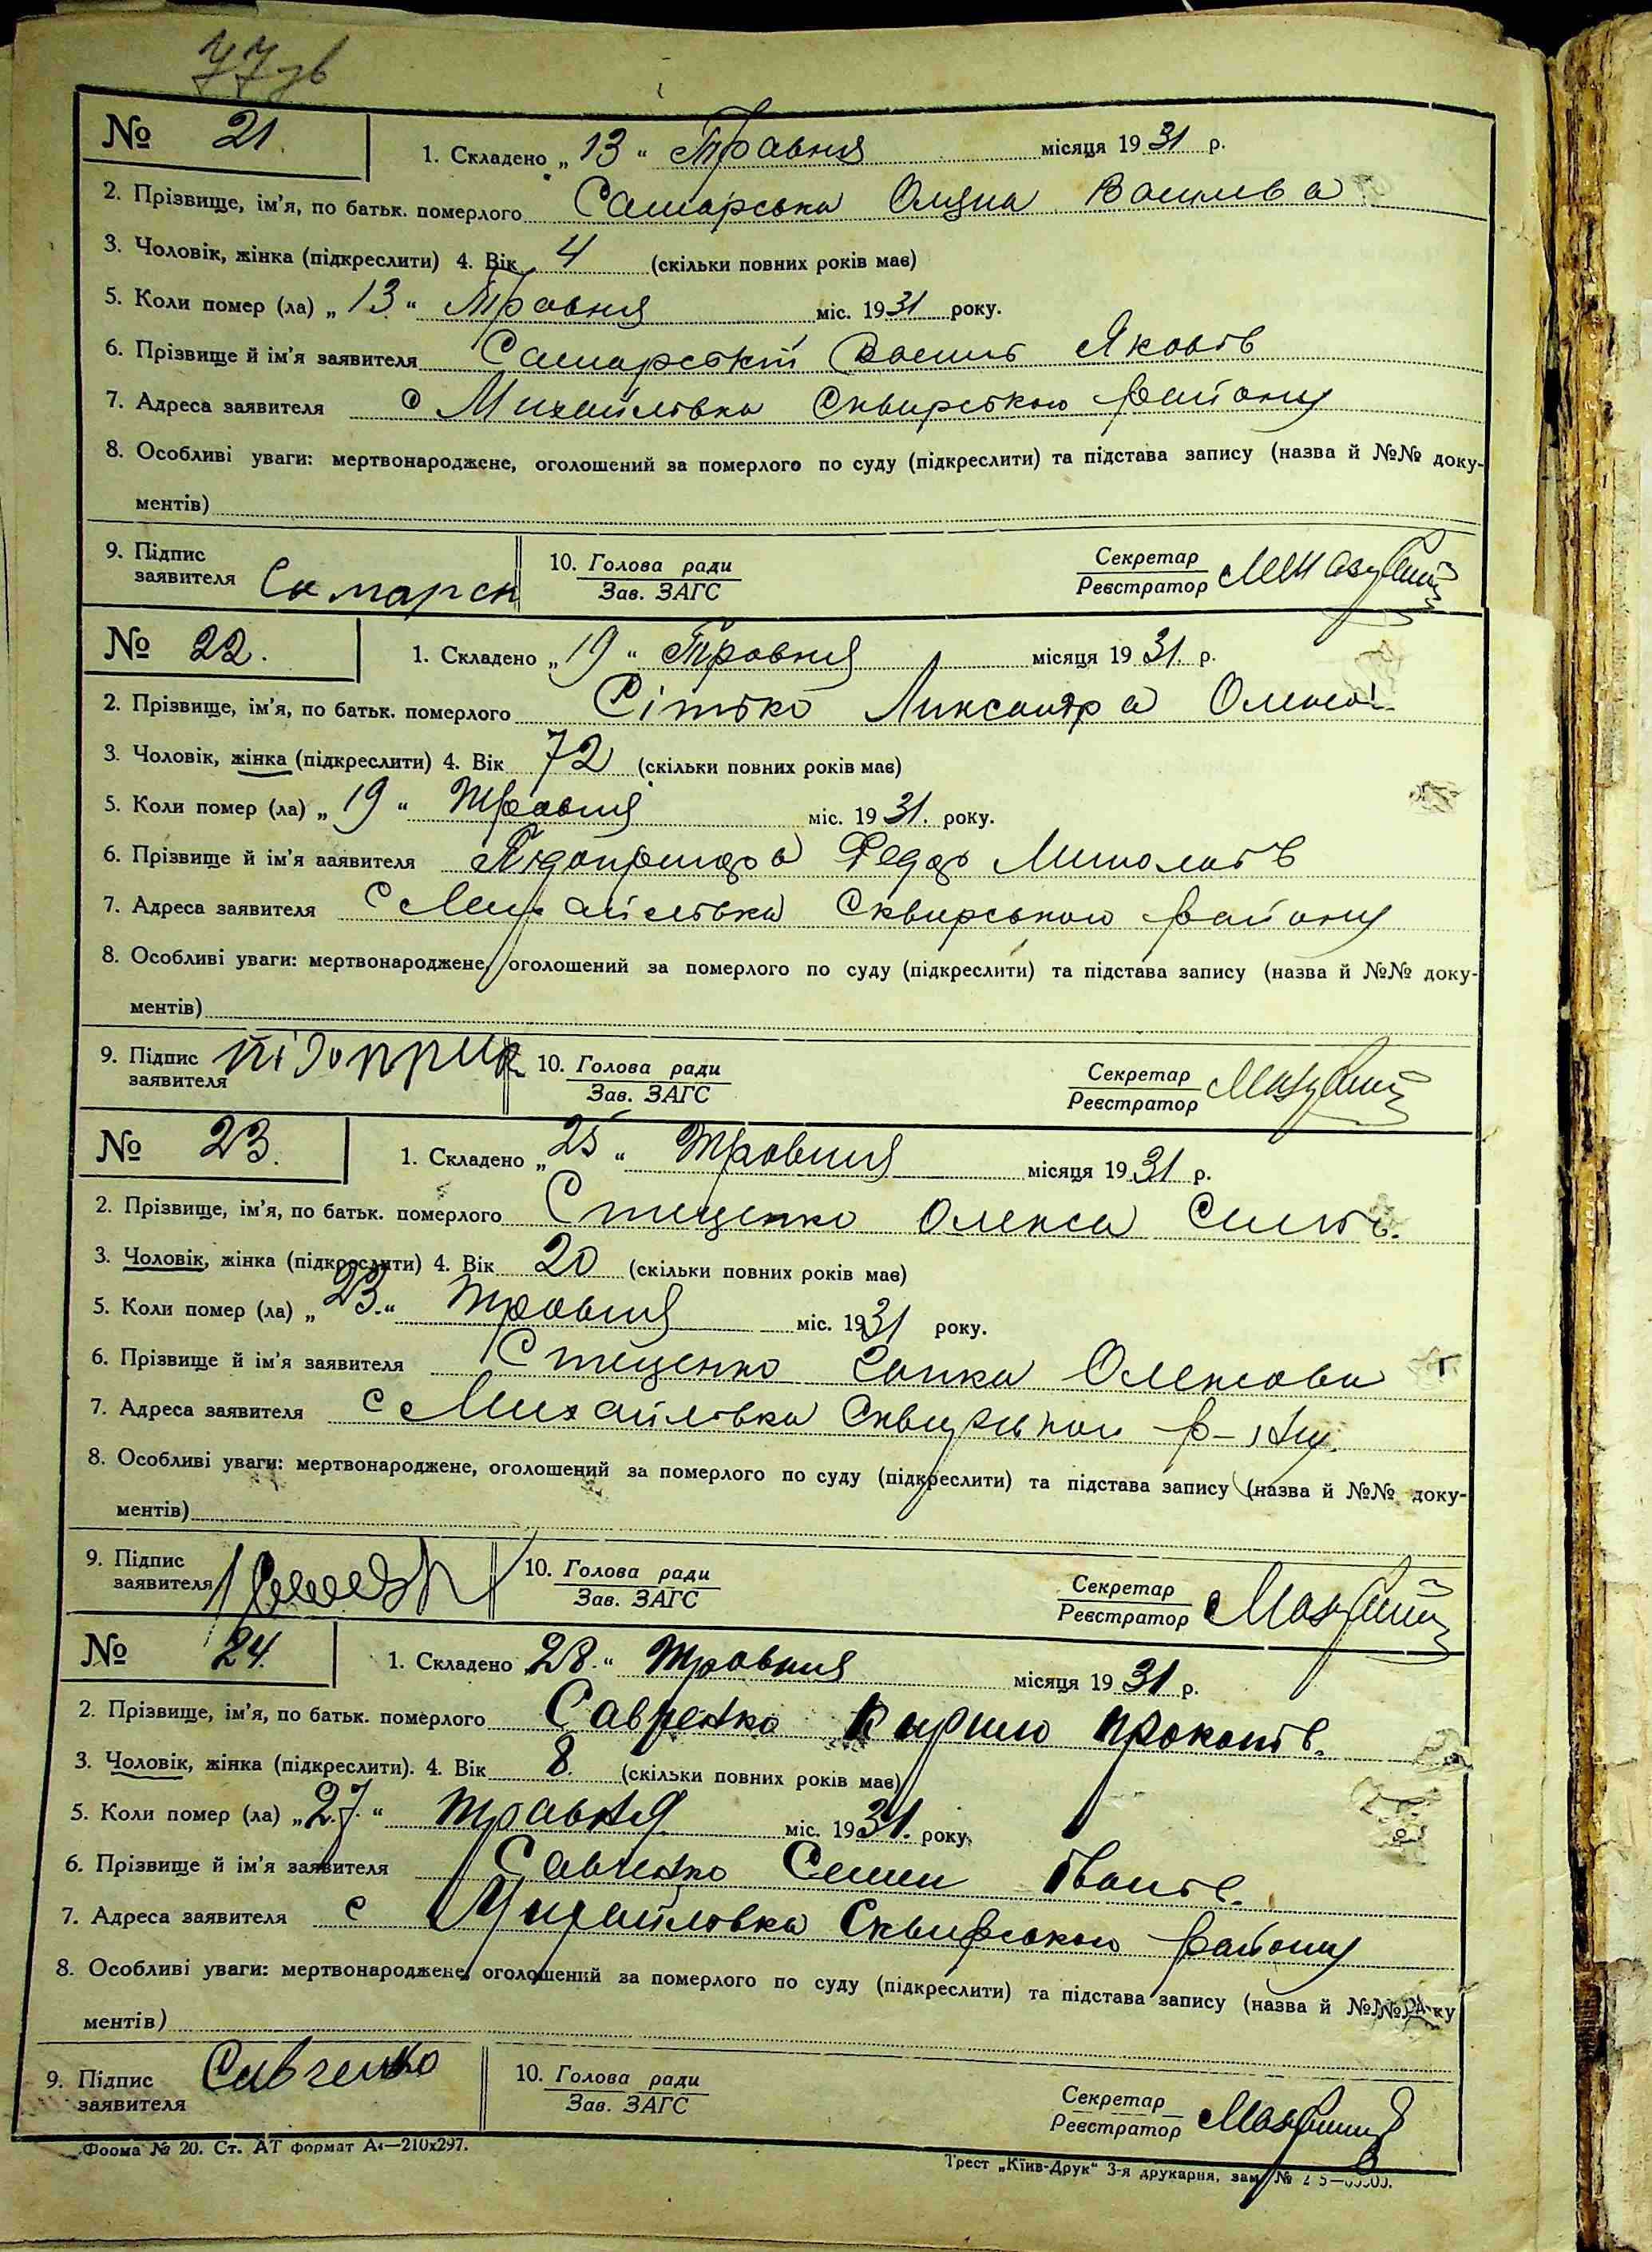 77 зв
№ 21. 1. Складено „13“ Травня місяця 1931 р.
2. Прізвище, ім'я, по батьк. померлого Самарська Василева
3. Чоловік, жінка (підкреслити) 4. Вік 4 (скільки повних років має)
5. Коли помер (ла) „13“ Травня міс. 1931 року.
6. Прізвище й ім'я заявителя Самарскій Василь Яковів
7. Адреса заявителя с Михайлівка Сквирського району
8. Особливі уваги: мертвонароджене, оголошений за померлого по суду (підкреслити) та підстава запису (назва й №№ доку-
ментів)
9. Підпис заявителя Самарск 10. Голова ради Секретар
Зав. ЗАГС Реєстратор
№ 22. 1. Складено „19“ Травня місяця 1931. р.
2. Прізвище, ім'я, по батьк. померлого Сітько Ликсандра
3. Чоловік, жінка (підкреслити) 4. Вік 72 (скільки повних років має)
5. Коли помер (ла) „19“ Травня міс. 1931. року.
6. Прізвище й ім'я заявителя Підопригора Федор
7. Адреса заявителя с Михайлівка Сквирського району
8. Особливі уваги: мертвонароджене, оголошений за померлого по суду (підкреслити) та підстава запису (назва й №№ доку-
ментів)
9. Підпис заявителя підоприг 10. Голова ради Секретар
Зав. ЗАГС Реєстратор
№ 23. 1. Складено „25“ Травня місяця 1931 р.
2. Прізвище, ім'я, по батьк. померлого Стиценко Олекса
3. Чоловік, жінка (підкреслити) 4. Вік 20 (скільки повних років має)
5. Коли помер (ла) „23.“ травня міс. 1931 року.
6. Прізвище й ім'я заявителя Стиценко Олексова
7. Адреса заявителя с Михайлівка Сквирського р-ну.
8. Особливі уваги: мертвонароджене, оголошений за померлого по суду (підкреслити) та підстава запису (назва й №№ доку-
ментів)
9. Підпис заявителя 10. Голова ради Секретар
Зав. ЗАГС Реєстратор
№ 24. 1. Складено 28.“ травня місяця 1931 р.
2. Прізвище, ім'я, по батьк. померлого Савченко Кирило Прокопів.
3. Чоловік, жінка (підкреслити). 4. Вік 8. (скільки повних років має)
5. Коли помер (ла) „27.“ травня міс. 1931. року.
6. Прізвище й ім'я заявителя Савченко Семен Іванів.
7. Адреса заявителя с Михайловка Сквирського району
8. Особливі уваги: мертвонароджене, оголошений за померлого по суду (підкреслити) та підстава запису (назва й №№ доку
ментів)
9. Підпис заявителя Савченко 10. Голова ради Секретар
Зав. ЗАГС Реєстратор
Форма № 20. Ст. АТ формат А4—210х297.
Трест „Київ-Друк“ 3-я друкарня, зам. №